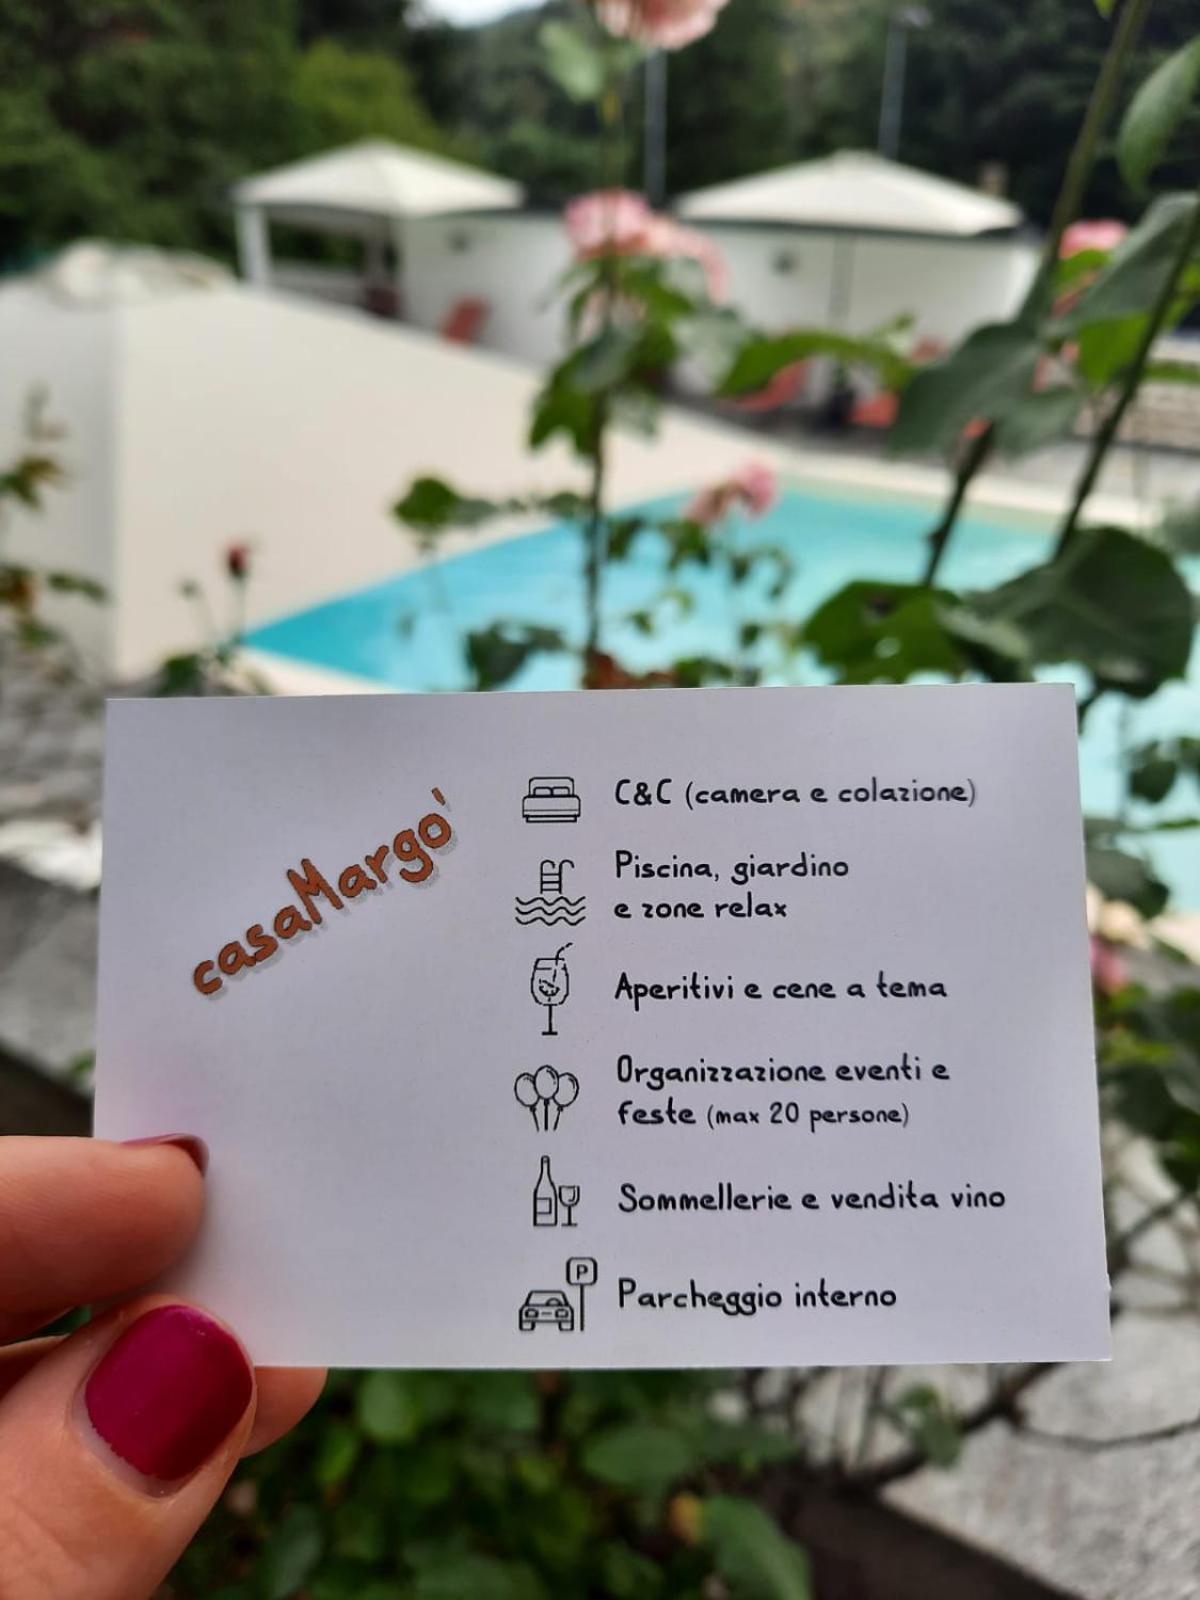 casaMargo'
C&C (camera e colazione)
Piscina, giardino
e zone relax
Aperitivi e cene a tema
Organizzazione eventi e
feste (max 20 persone)
Sommellerie e vendita vino
P
Parcheggio interno